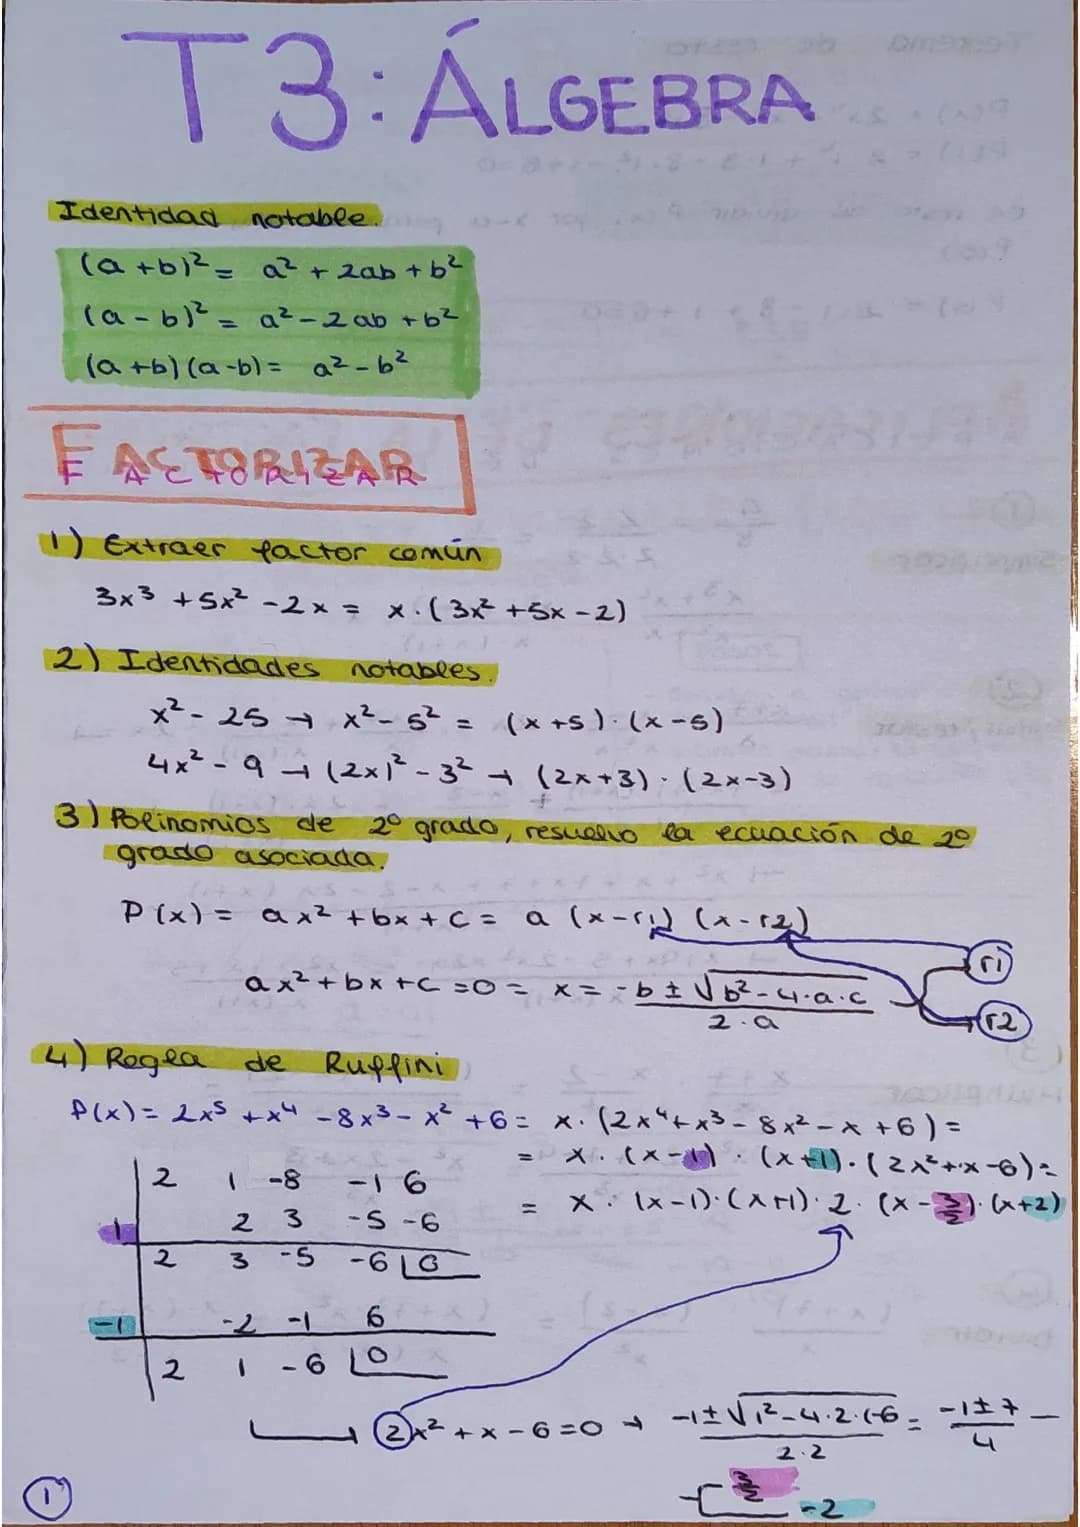 T3: ÁLGEBRA
Identidad notable.
(a+b)² = a² + 2ab + b²
(a-b)² = a² - 2ab + b²
(a+b)(a-b) = a² - b²
FACTORIZAR
1) Extraer factor común
3x³ + 5x² - 2x = x·(3x² + 5x - 2)
2) Identidades notables.
x² - 25 → x² - 5² = (x+5)·(x-5)
4x² - 9 → (2x)² - 3² → (2x+3)·(2x-3)
3) Polinomios de 2º grado, resuelvo la ecuación de 2º
grado asociada.
P(x) = ax² + bx + c = a (x-r1) (x-r2)
r1
ax² + bx + c = 0 = x = -b ± √b² - 4·a·c / 2·a
r2
4) Regla de Ruffini
P(x) = 2x⁵ + x⁴ - 8x³ - x² + 6 = x·(2x⁴ + x³ - 8x² - x + 6) =
= x·(x-1)·(x+1)·(2x² + x - 6) =
= x·(x-1)·(x+1)·2·(x - 3/2)·(x+2)
2 1 -8 -1 6
1 2 3 -5 -6
2 3 -5 -6 0
-1 -2 -1 6
2 1 -6 0
2x² + x - 6 = 0 → -1 ± √1² - 4·2·(-6 / 2·2 = -1 ± 7 / 4
3/2
-2
1